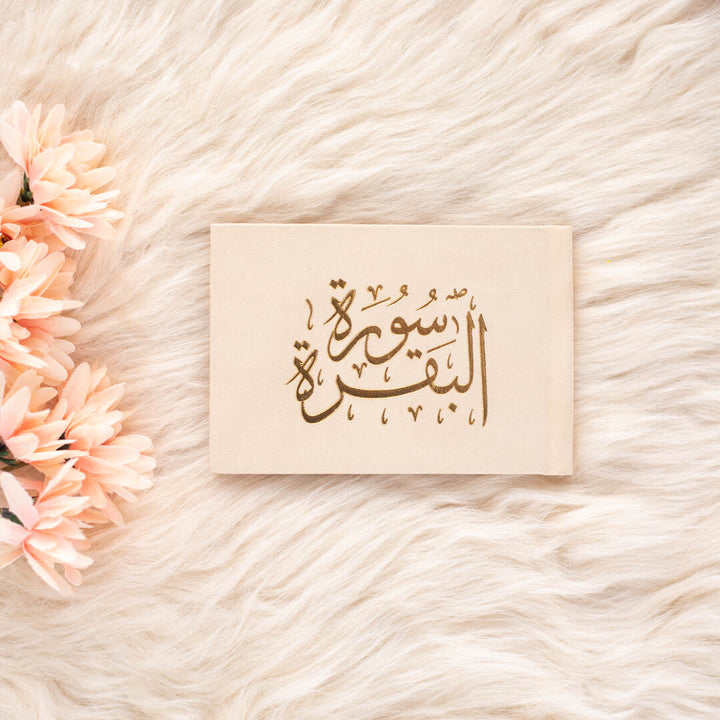 سُورَة
البَقَرة